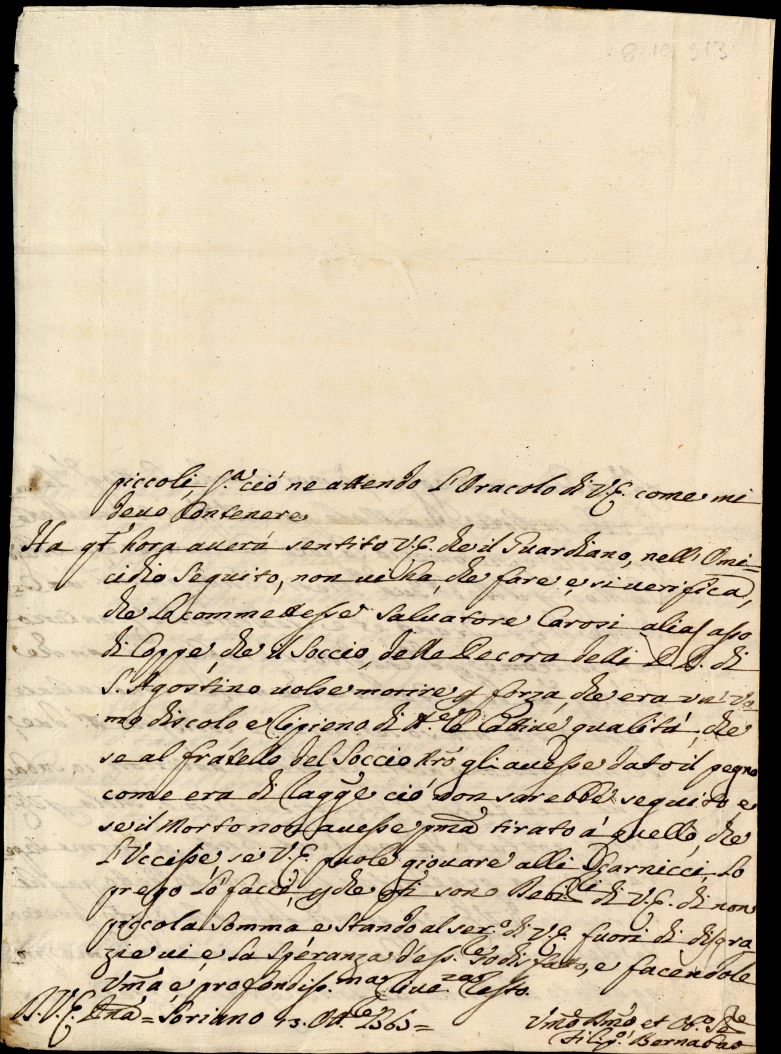 8. 10 513
piccoli, p.a ciò ne attendo L'Oracolo di V.E. come mi
devo Contenere
Ha qt' hora averà sentito V.E. che il Guardiano, nell'Omi-
cidio Seguito, non vi ha, che fare e, si verifica,
che La commettesse Salvatore Carosi alias asso
di Coppe, che il Soccio, delle Pecora delli P.P. di
S. Agostino volse morire p forza, che era un' Vo-
mo discolo e Ripieno di Cattive qualità, che
se al fratello del Soccio gli avesse dato il pegno
come era di ciò non sarebbe seguito e
se il Morto non avesse pma tirato á quello, che
L'Uccise, se V.E. puole giovare alli Scarnicci, Lo
prego Lo facci, p che qti sono Deb.li di V.E. di non
piccola Somma e Stando al ser.o di V.E. fuori di disgra-
zie vi é La Speranza d'ess. e facendole
Vma é profondiss.ma Resto.
D. V. E. = Soriano 13. Ott.e 1363 =
Vmo Dmo et Ob.o
Filip.o Bernabao